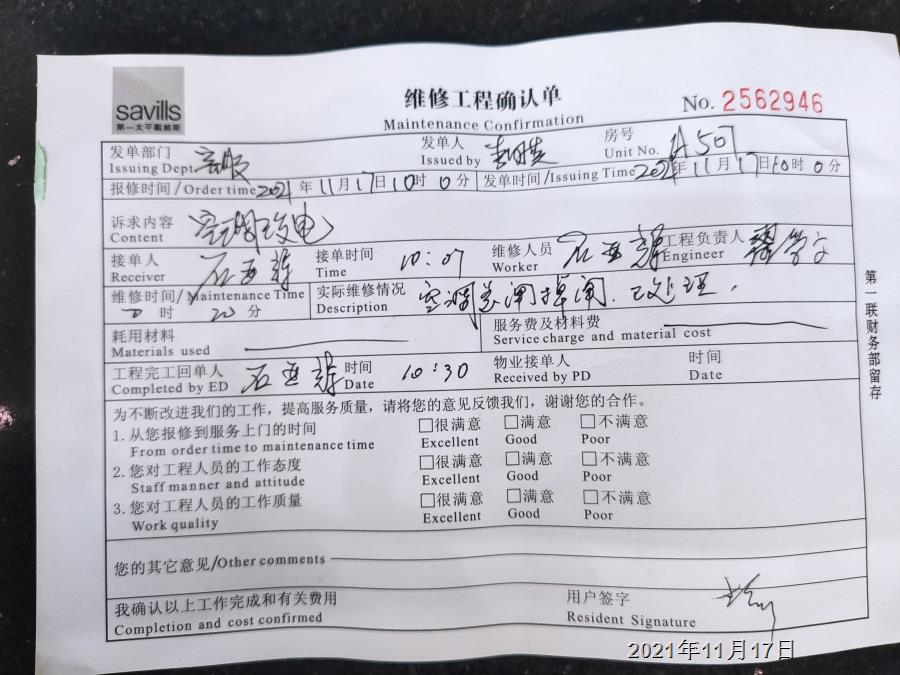 savills
第一太平戴维斯
维修工程确认单
Maintenance Confirmation
No. 2562946
发单部门
Issuing Dept. 客服
发单人
Issued by
房号
Unit No. A507
报修时间/Order time 2021年11月17日10时0分
发单时间/Issuing Time 2021年11月17日10时0分
诉求内容 空调没电
Content
接单人
Receiver 石亚辉
接单时间 10:07
Time
维修人员 石亚辉
Worker
工程负责人
Engineer
维修时间/Maintenance Time
0时20分
实际维修情况 空调总闸掉闸,已处理.
Description
耗用材料
Materials used
服务费及材料费
Service charge and material cost
工程完工回单人 石亚辉
Completed by ED
时间 10:30
Date
物业接单人
Received by PD
时间
Date
为不断改进我们的工作，提高服务质量，请将您的意见反馈我们，谢谢您的合作。
1.从您报修到服务上门的时间 □很满意 □满意 □不满意
From order time to maintenance time Excellent Good Poor
2.您对工程人员的工作态度 □很满意 □满意 □不满意
Staff manner and attitude Excellent Good Poor
3.您对工程人员的工作质量 □很满意 □满意 □不满意
Work quality Excellent Good Poor
您的其它意见/Other comments
我确认以上工作完成和有关费用
Completion and cost confirmed
用户签字
Resident Signature
第一联财务部留存
2021年11月17日